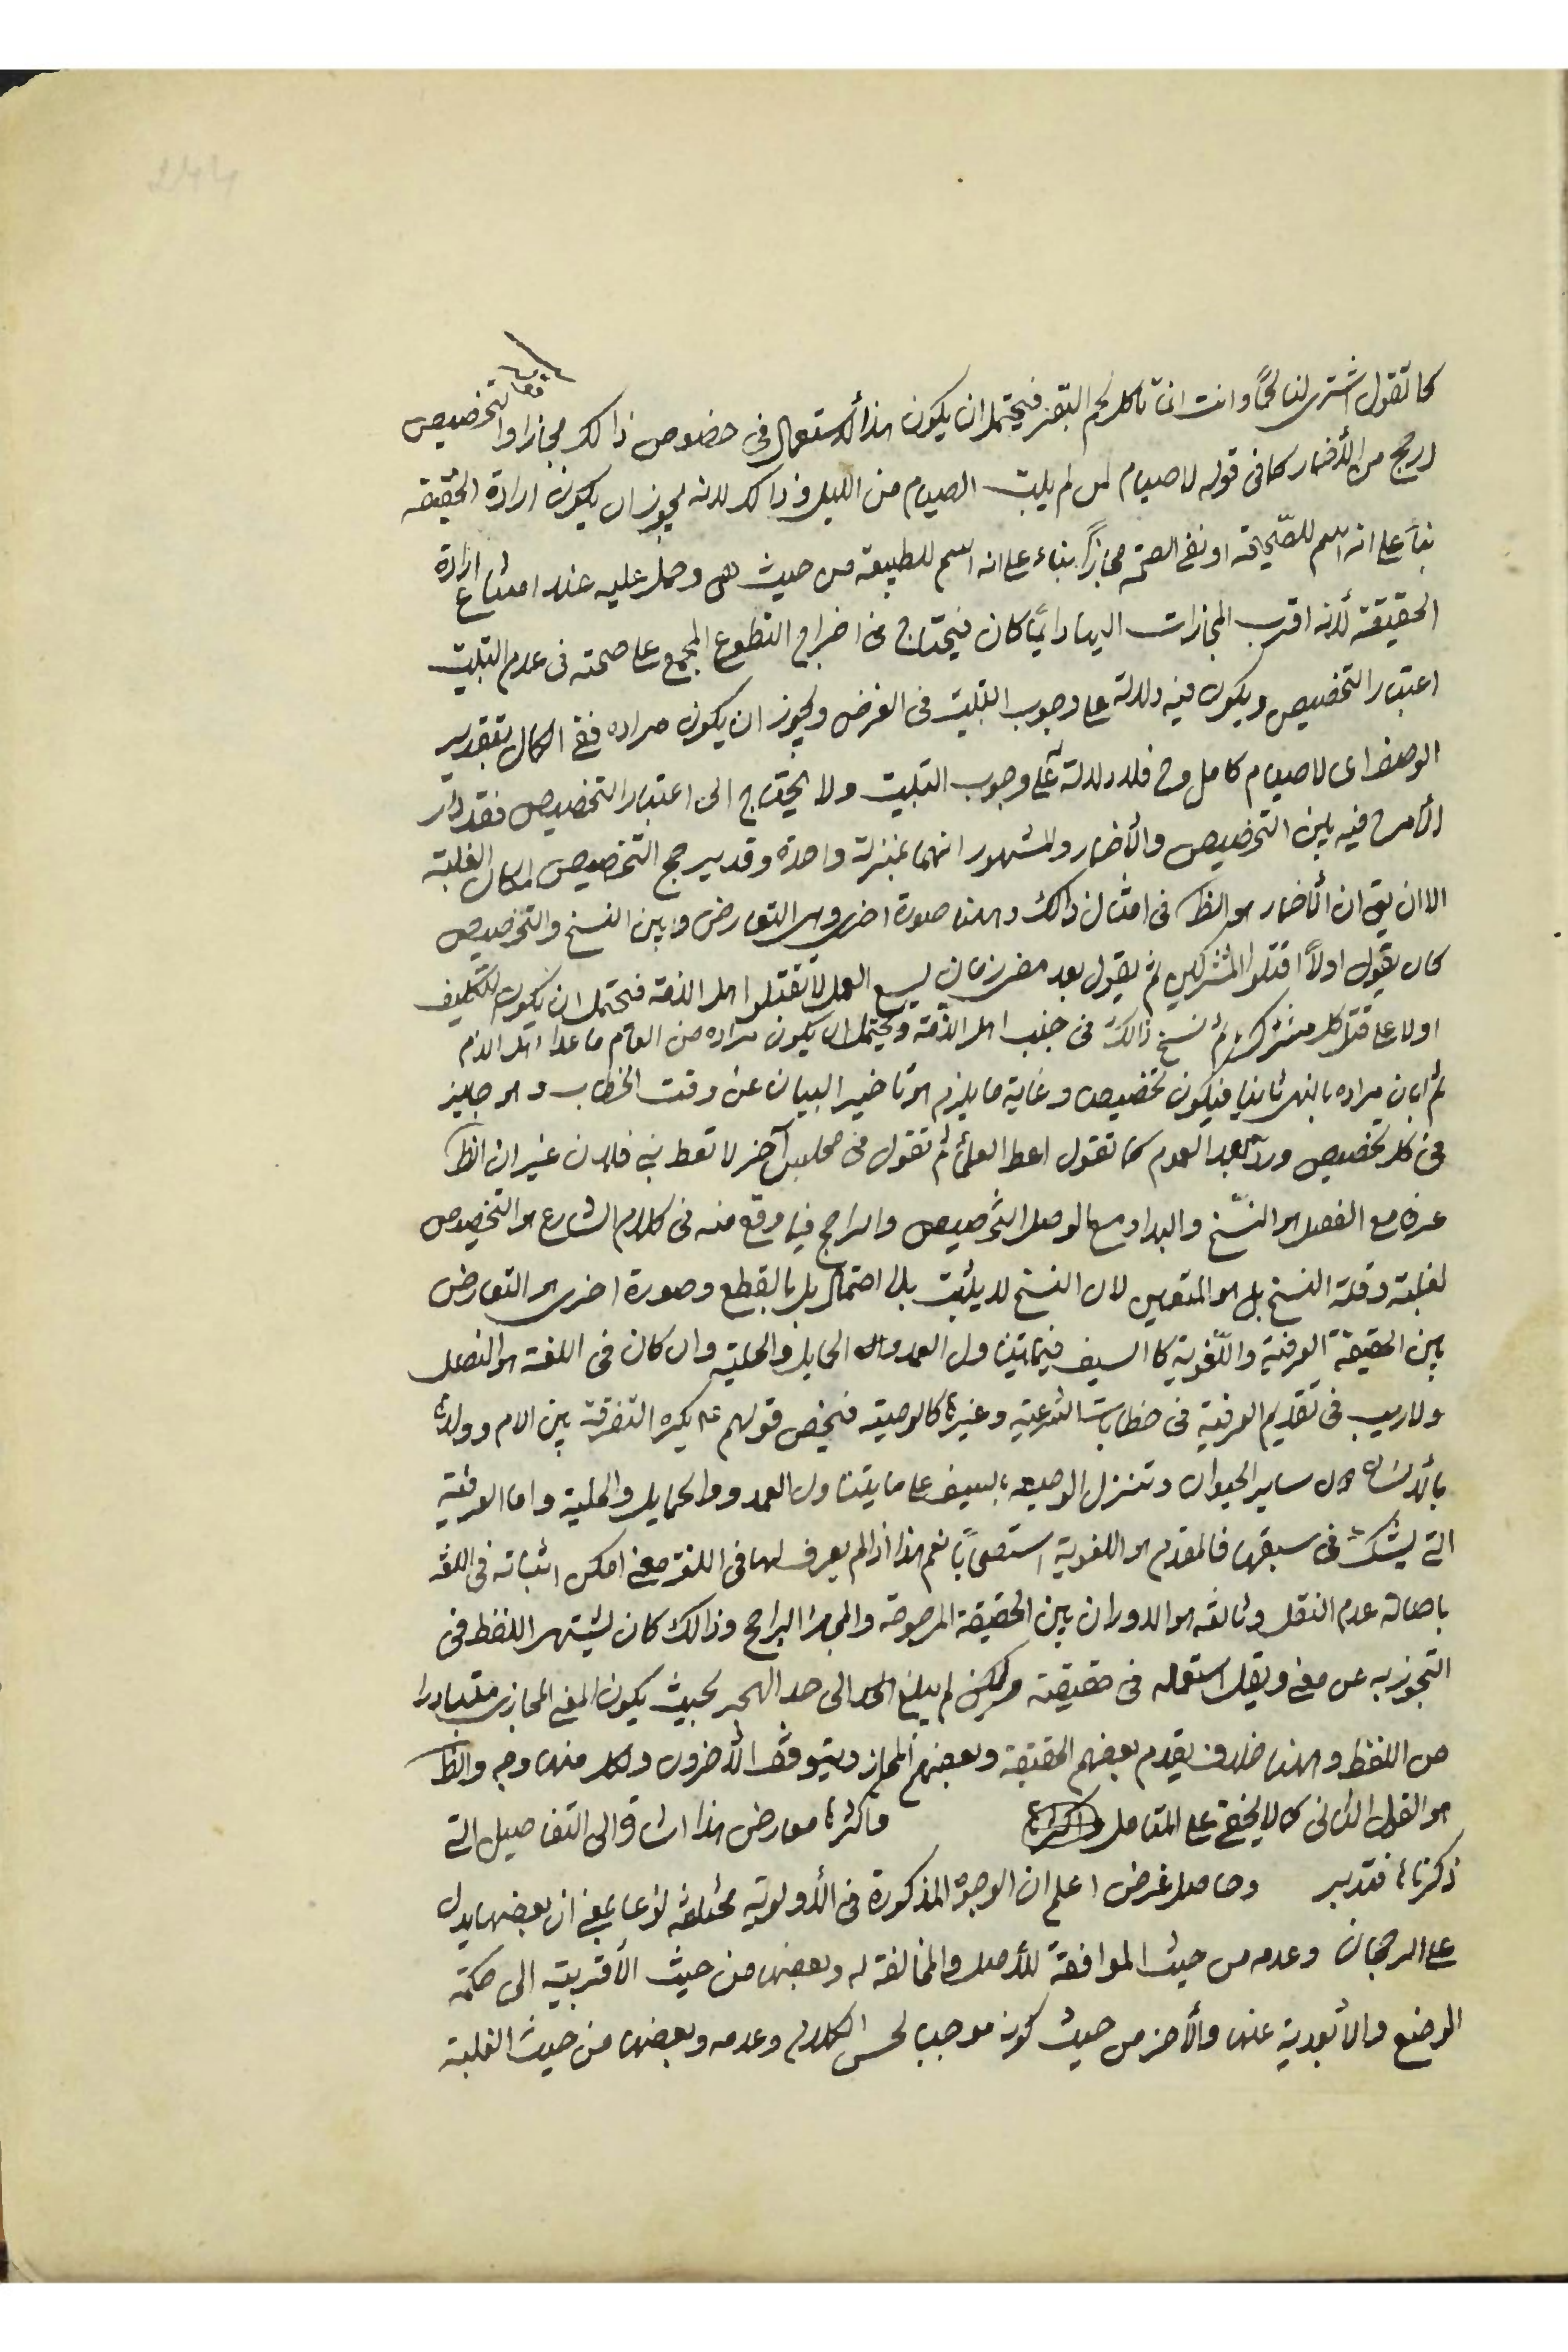 كما تقول اشترى لنا لحمًا وانت انما تاكل لحم البقر فيحتمل ان يكون هذا الاستعمال فى خصوص ذالك مجازا والتخصيص
ارجح من الأضمار كما فى قوله لا صيام لمن لم يبت الصيام من الليل وذالك لانه يجوز ان يكون ارادة الحقيقه
بناء على انه اسم للصّحيحة او نفى الصحة مجازًا بناء على انه اسم للطبيعة من حيث هى وحمل عليه عند امتناع ارادة
الحقيقة لأنه اقرب المجازات اليها وايًّا كان فيحتاج فى اخراج التطوع المجمع على صحته فى عدم التبييت
اعتبار التخصيص ويكون فيه دلالة على وجوب التبييت فى الفرض ويجوز ان يكون مراده نفى الكمال بتقدير
الوصف اى لا صيام كامل وح فلا دلالة على وجوب التبييت ولا يحتاج الى اعتبار التخصيص فقد دار
الأمر فيه بين التخصيص والأضمار والمشهور انهما بمنزلة واحدة وقد يرجح التخصيص لمكان الغلبة
الا ان يق ان الأضمار هو الظ فى امثال ذالك وههنا صورة اخرى وهى التعارض وبين النسخ والتخصيص
كان يقول اولاً اقتلوا المشركين ثم يقول بعد مضى زمان يسع العمل لا تقتلوا اهل الذمة فيحتمل ان يكون التكليف
اولا على قتل كل مشرك ثم نسخ ذالك فى جنب اهل الذّمة ويحتمل ان يكون مراده من العام ما عدا اهل الذم
ثم ابان مراده بالنهى ثانيا فيكون تخصيص وغاية ما يلزم هو تاخير البيان عن وقت الخطاب وهو جايز
فى كل تخصيص ورد بعد العموم كما تقول اعط العلمأ ثم تقول فى مجلس آخر لا تعط بنى فلان غير ان الظ
عرفا مع الفصل هو النّسخ والبدا ومع الوصل التّخصيص والراجح فيما وقع منه فى كلام الشارع هو التخصيص
لغلبته وقلة النسخ بل هو المتعين لان النسخ لا يثبت بالاحتمال بل بالقطع وصورة اخرى هو التعارض
بين الحقيقة العرفية واللّغوية كا السيف فيما يتناول الغمد والحمايل والحلية وان كان فى اللغة هو النصل
ولا ريب فى تقديم العرفية فى خطابات الشرعية وغيرها كالوصية فيخص قولهم ع يكره التفرقة بين الام وولدها
بالأنسان دون ساير الحيوان وتنزل الوصيه بالسيف على ما يتناول الغمد والحمايل والحلية واما العرفية
التى يشك فى سبقها فالمقدم هو اللغوية استصحابًا نعم هذا اذا لم يعرف لها فى اللغة معنى امكن اثباته فى اللغة
باصالة عدم النقل وثالثه هو الدوران بين الحقيقة المرجوحة والمجاز الراجح وذالك كان يشتهر اللفظ فى
التجوز به عن معنى ويقل استعماله فى حقيقته ولكن لم يبلغ الحد الى حد الهجر بحيث يكون المعنى المجازى متبادرا
من اللفظ وههنا خلاف يقدم بعضهم الحقيقة وبعضهم المجاز ويتوقف الأخرون ولكل منها وجه والظ
هو القول الثانى كما لا يخفى على المتامل واكثرها معارض هذا اشارة الى التفاصيل التى
ذكرناها فتدبر وحاصل غرض اعلم ان الوجوه المذكورة فى الأولوية مختلفة نوعا بمعنى ان بعضها يدل
على الرجحان وعدمه من حيث الموافقة للأصل والمخالفة له وبعضها من حيث الأقربية الى حكمة
الوضع والأبعدية عنها والأخر من حيث كونه موجبا لحسن الكلام وعدمه وبعضها من حيث الغلبة